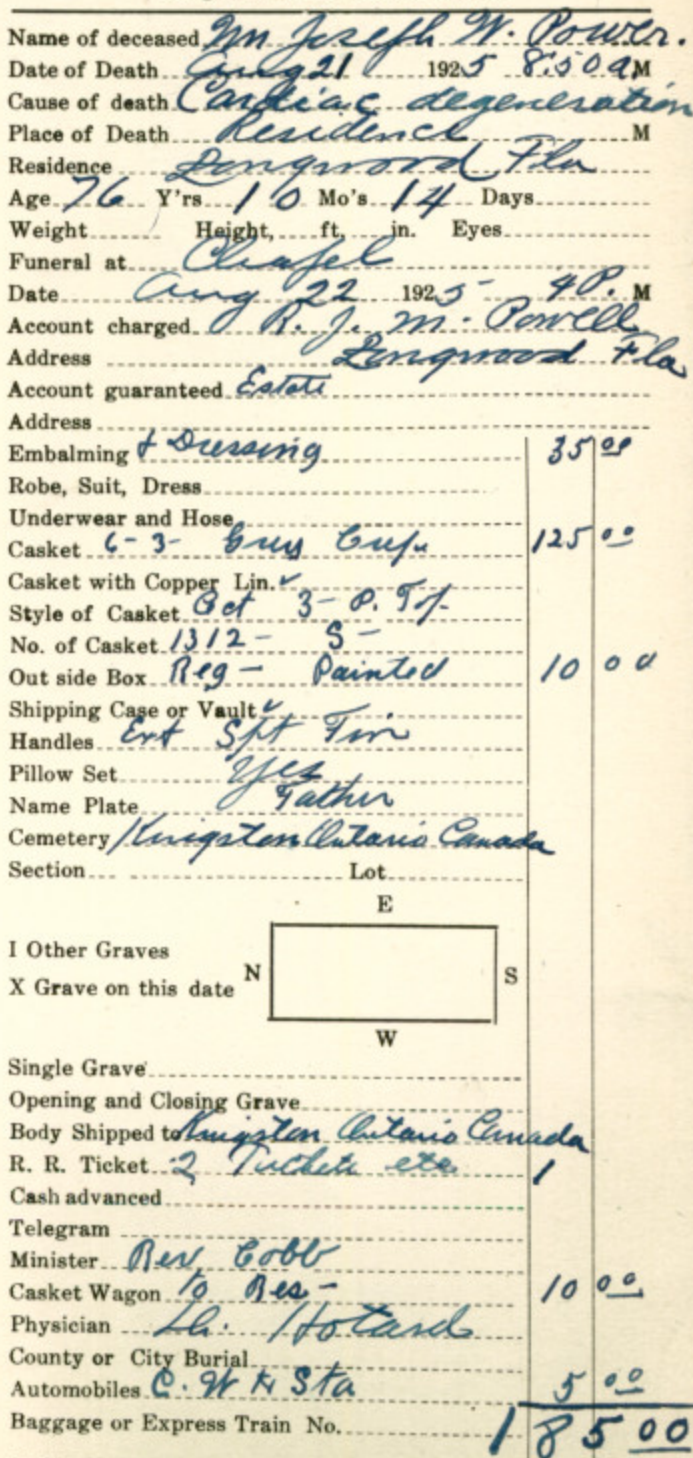 Name of deceased Mr Joseph W. Power.
Date of Death Aug 21 1925 8:50 A M
Cause of death Cardiac degeneration
Place of Death Residence M
Residence Longwood Fla
Age 76 Y'rs 10 Mo's 14 Days
Weight Height, ft, in. Eyes
Funeral at Chapel
Date Aug 22 1925 4 P. M
Account charged R. J. M. Powell
Address Longwood Fla
Account guaranteed Estate
Address
Embalming & Dressing 35 00
Robe, Suit, Dress
Underwear and Hose
Casket 6-3- Grey Crepe 125 00
Casket with Copper Lin.
Style of Casket Oct 3- P. Top
No. of Casket 1312- S-
Out side Box Reg- Painted 10 00
Shipping Case or Vault
Handles Ext
Pillow Set Yes
Name Plate Father
Cemetery Kingston Ontario Canada
Section Lot
E
I Other Graves
N S
X Grave on this date
W
Single Grave
Opening and Closing Grave
Body Shipped to Kingston Ontario Canada
R. R. Ticket 2 Tickets etc 1
Cash advanced
Telegram
Minister Rev Cobb
Casket Wagon to Res- 10 00
Physician Dr. Hotard
County or City Burial
Automobiles C. W to Sta 5 00
Baggage or Express Train No. 185 00